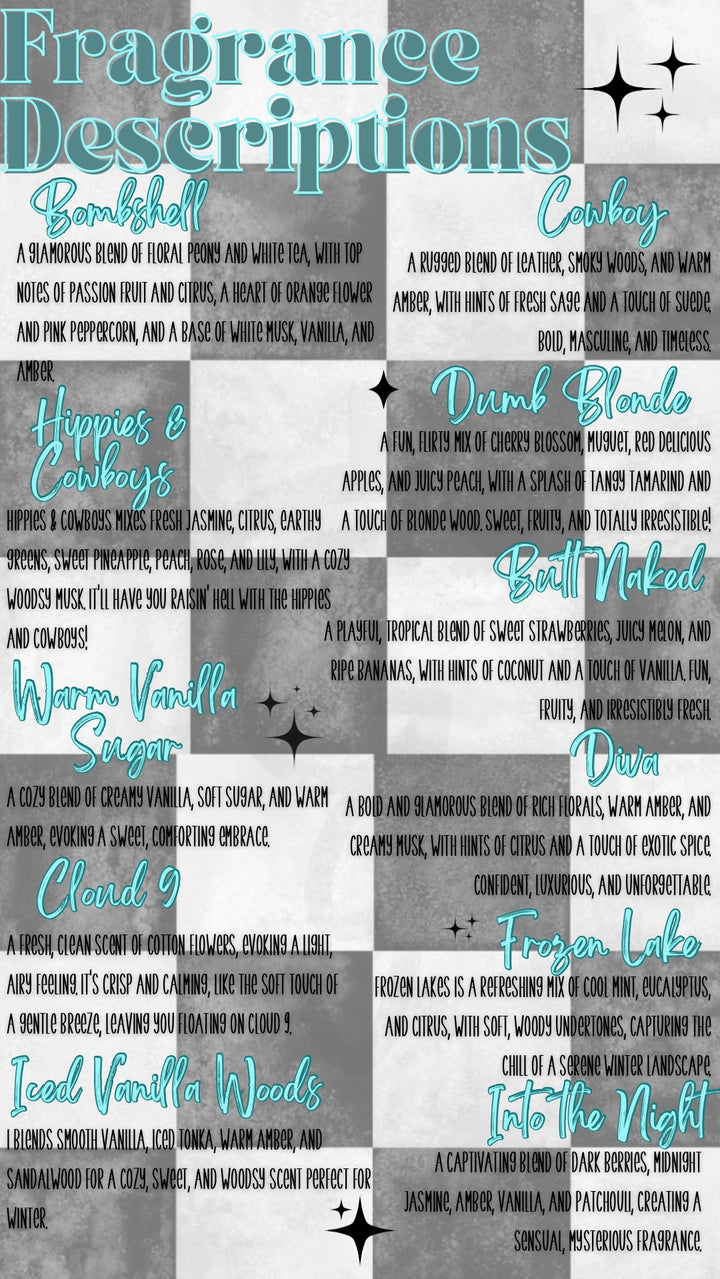 Fragrance
Descriptions
Bombshell
A GLAMOROUS BLEND OF FLORAL PEONY AND WHITE TEA, WITH TOP
NOTES OF PASSION FRUIT AND CITRUS, A HEART OF ORANGE FLOWER
AND PINK PEPPERCORN, AND A BASE OF WHITE MUSK, VANILLA, AND
AMBER.
Hippies &
Cowboys
HIPPIES & COWBOYS MIXES FRESH JASMINE, CITRUS, EARTHY
GREENS, SWEET PINEAPPLE, PEACH, ROSE, AND LILY, WITH A COZY
WOODSY MUSK. IT'LL HAVE YOU RAISIN' HELL WITH THE HIPPIES
AND COWBOYS!
Warm Vanilla
Sugar
A COZY BLEND OF CREAMY VANILLA, SOFT SUGAR, AND WARM
AMBER, EVOKING A SWEET, COMFORTING EMBRACE.
Cloud 9
A FRESH, CLEAN SCENT OF COTTON FLOWERS, EVOKING A LIGHT,
AIRY FEELING. IT'S CRISP AND CALMING, LIKE THE SOFT TOUCH OF
A GENTLE BREEZE, LEAVING YOU FLOATING ON CLOUD 9.
Iced Vanilla Woods
I BLENDS SMOOTH VANILLA, ICED TONKA, WARM AMBER, AND
SANDALWOOD FOR A COZY, SWEET, AND WOODSY SCENT PERFECT FOR
WINTER.
Cowboy
A RUGGED BLEND OF LEATHER, SMOKY WOODS, AND WARM
AMBER, WITH HINTS OF FRESH SAGE AND A TOUCH OF SUEDE.
BOLD, MASCULINE, AND TIMELESS.
Dumb Blonde
A FUN, FLIRTY MIX OF CHERRY BLOSSOM, MUGUET, RED DELICIOUS
APPLES, AND JUICY PEACH, WITH A SPLASH OF TANGY TAMARIND AND
A TOUCH OF BLONDE WOOD. SWEET, FRUITY, AND TOTALLY IRRESISTIBLE!
Butt Naked
A PLAYFUL, TROPICAL BLEND OF SWEET STRAWBERRIES, JUICY MELON, AND
RIPE BANANAS, WITH HINTS OF COCONUT AND A TOUCH OF VANILLA. FUN,
FRUITY, AND IRRESISTIBLY FRESH.
Diva
A BOLD AND GLAMOROUS BLEND OF RICH FLORALS, WARM AMBER, AND
CREAMY MUSK, WITH HINTS OF CITRUS AND A TOUCH OF EXOTIC SPICE.
CONFIDENT, LUXURIOUS, AND UNFORGETTABLE.
Frozen Lake
FROZEN LAKES IS A REFRESHING MIX OF COOL MINT, EUCALYPTUS,
AND CITRUS, WITH SOFT, WOODY UNDERTONES, CAPTURING THE
CHILL OF A SERENE WINTER LANDSCAPE.
Into the Night
A CAPTIVATING BLEND OF DARK BERRIES, MIDNIGHT
JASMINE, AMBER, VANILLA, AND PATCHOULI, CREATING A
SENSUAL, MYSTERIOUS FRAGRANCE.